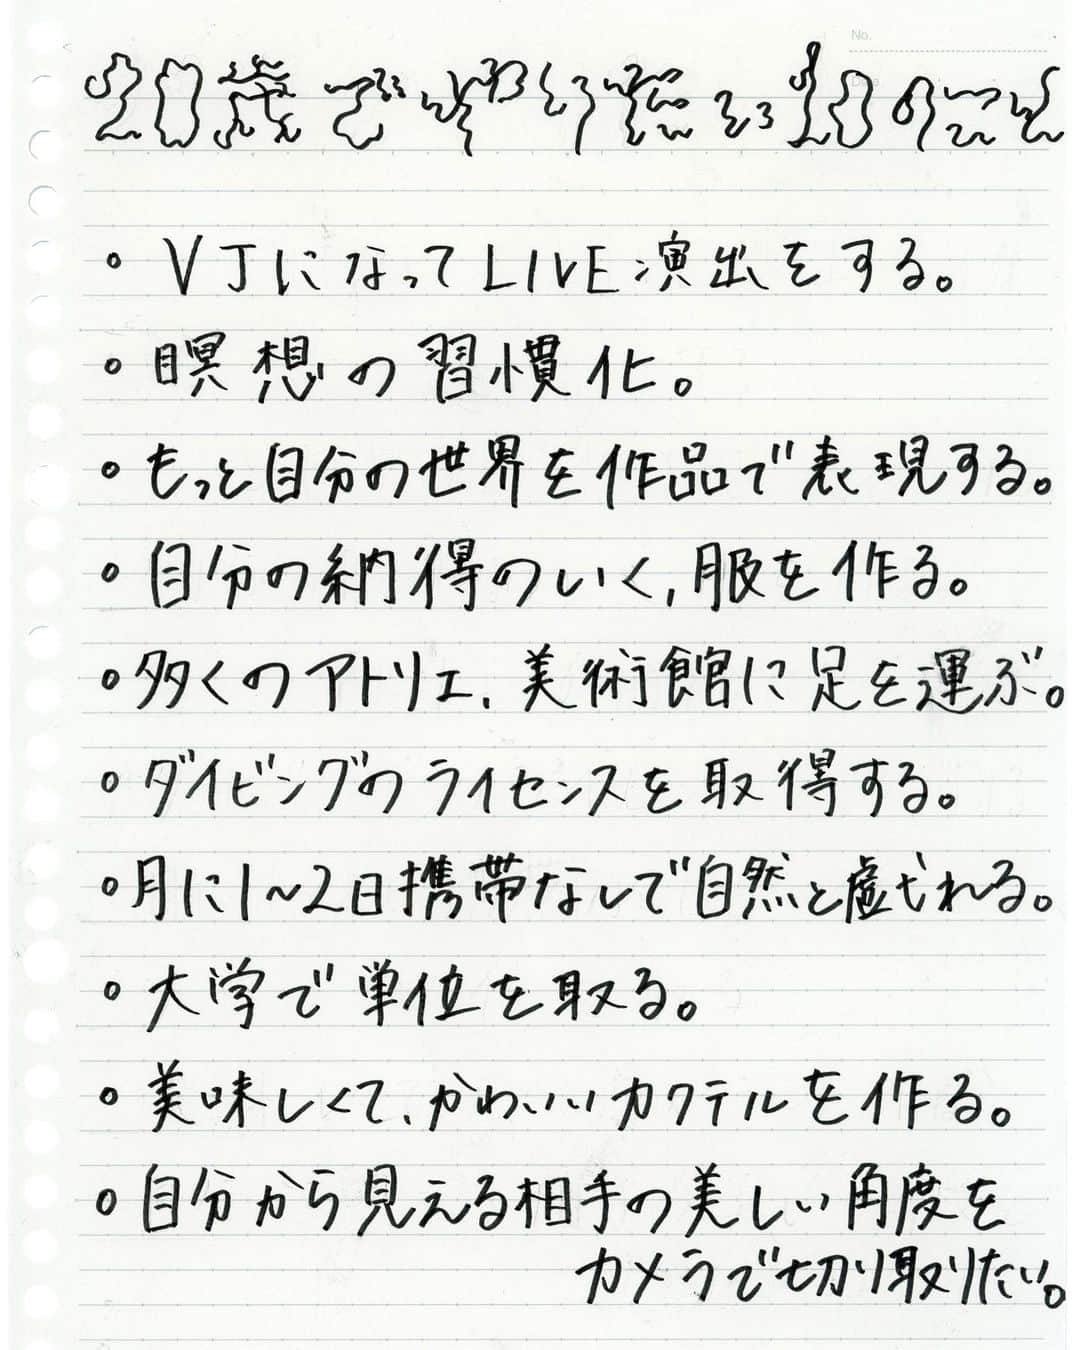 No.
20歳でやりたい10のこと
・VJになってLIVE演出をする。
・瞑想の習慣化。
・もっと自分の世界を作品で表現する。
・自分の納得のいく,服を作る。
・多くのアトリエ、美術館に足を運ぶ。
・ダイビングのライセンスを取得する。
・月に1~2日携帯なしで自然と戯れる。
・大学で単位を取る。
・美味しくて、かわいいカクテルを作る。
・自分から見える相手の美しい角度を
カメラで切り取りたい。